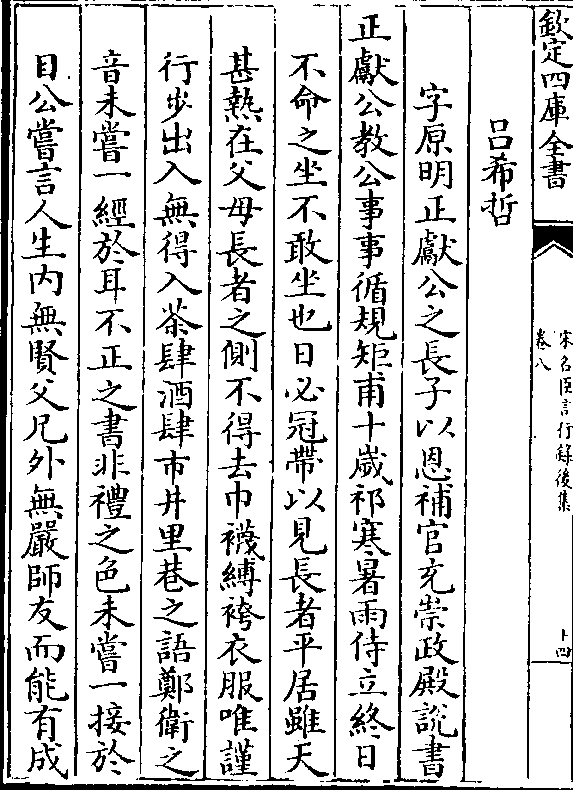 欽定四庫全書
宋名臣言行錄後集
卷八
十四
呂希哲
字原明正獻公之長子以恩補官充崇政殿說書
正獻公教公事事循規矩甫十歲祁寒暑雨侍立終日
不命之坐不敢坐也日必冠帶以見長者平居雖天
甚熱在父母長者之側不得去巾襪縛袴衣服唯謹
行步出入無得入茶肆酒肆市井里巷之語鄭衛之
音未嘗一經於耳不正之書非禮之色未嘗一接於
目公嘗言人生内無賢父兄外無嚴師友而能有成